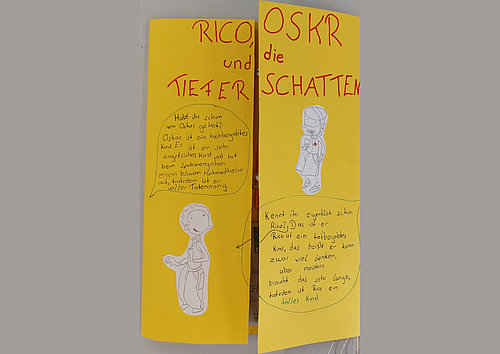 RICO, OSKR
und die
TIEFER SCHATTEN
Habt ihr schon
von Oskar gehört?
Oskar ist ein hochbegabtes
Kind. Er ist ein sehr
ängstliches Kind und hat
beim Spazierengehen
einen blauen Motorradhelm
auf, trotzdem ist er
voller Tatendrang
Kennt ihr eigentlich schon
Rico? Das ist er.
Rico ist ein tiefbegabtes
Kind, das heißt er kann
zwar viel denken,
aber meistens
braucht das sehr lange,
trotzdem ist Rico ein
tolles Kind.